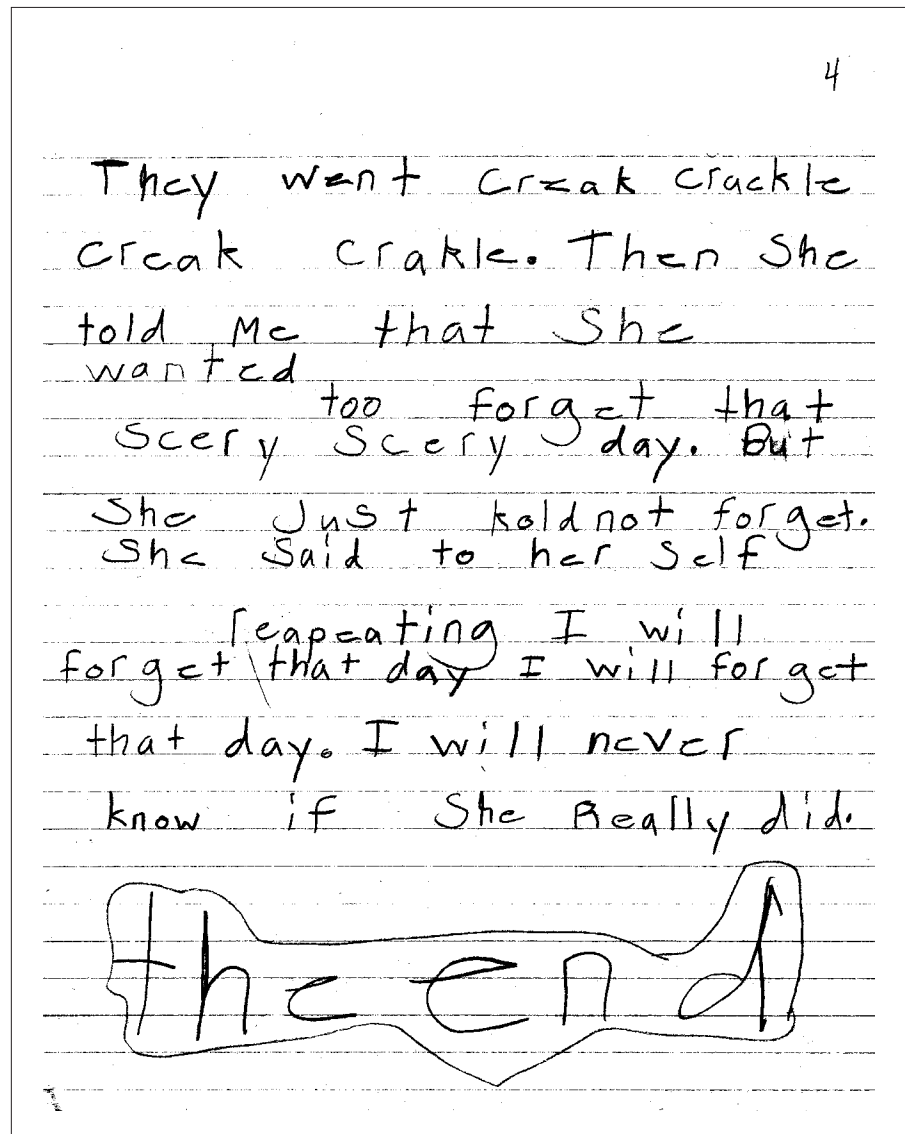 4
They went creak crackle
creak crakle. Then She
told Me that She
wanted
too forget that
Scery Scery day. But
She Just koldnot forget.
She Said to her Self
reapeating I will
forget that day I will forget
that day. I will never
know if She Really did.
the end